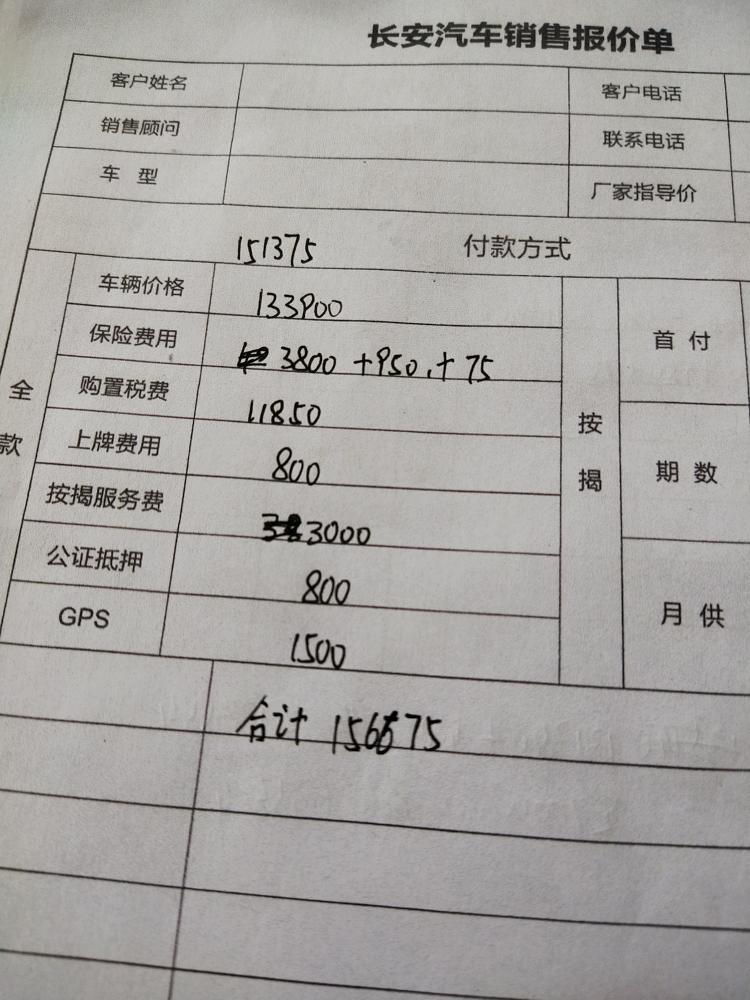 长安汽车销售报价单
客户姓名 客户电话
销售顾问 联系电话
车 型 厂家指导价
151375 付款方式
全款
车辆价格 133900
保险费用 3800 +950 + 75
购置税费 11850
上牌费用 800
按揭服务费 3000
公证抵押 800
GPS 1500
按揭
首 付
期 数
月 供
合计 156675